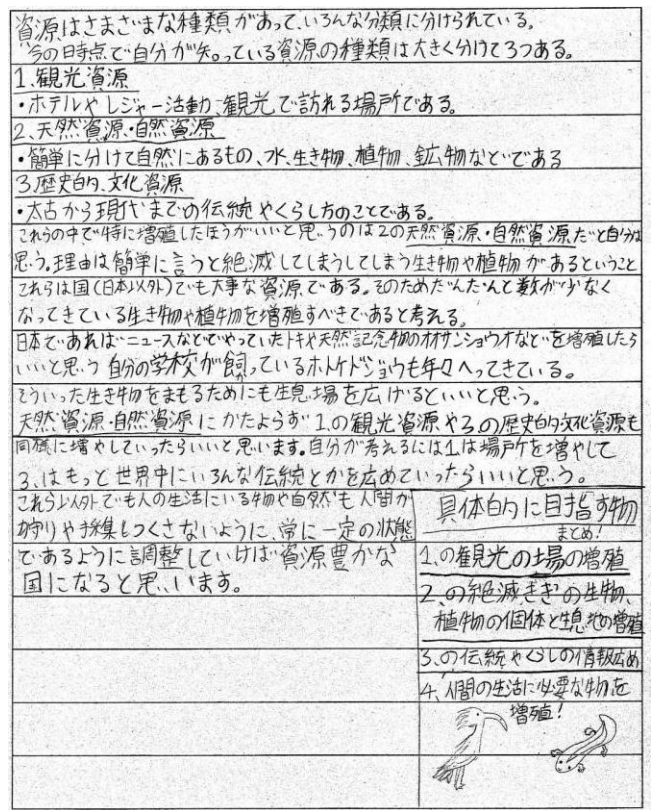 資源はさまざまな種類があって、いろんな分類に分けられている。
今の日時点で自分が知っている資源の種類は大きく分けて3つある。
1.観光資源
・ホテルやレジャー活動、観光で訪れる場所である。
2、天然資源・自然資源
・簡単に分けて自然にあるもの、水、生き物、植物、鉱物などである
3.歴史的、文化資源
・太古から現代までの伝統やくらし方のことである。
これらの中で特に増殖したほうがいいと思うのは2の天然資源・自然資源だと自分は
思う。理由は簡単に言うと絶滅してしまうしてしまう生き物や植物があるということ
これらは国(日本以外)でも大事な資源である。そのためだんだんと数が少なく
なってきている生き物や植物を増殖すべきであると考える。
日本であればニュースなどでやっていたトキや天然記念物のオオサンショウオなどを増殖したら
いいと思う 自分の学校が飼っているホトケドジョウも年々へってきている。
そういった生き物をまもるためにも生息場を広げるといいと思う。
天然資源・自然資源にかたよらず1.の観光資源や3.の歴史的文化資源も
同様に増やしていったらいいと思います。自分が考えるには1.は場所を増やして
3、はもっと世界中にいろんな伝統とかを広めていったらいいと思う。
これら以外でも人の生活にいる物や自然も人間が
狩りや採集しつくさないように、常に一定の状態
であるように調整していけば資源豊かな
国になると思います。
具体的に目指す物
まとめ!
1、の観光の場の増殖
2、の絶滅きぎの生物、
植物の個体と生息地の増殖
3、の伝統やくらしの情報広め
4、人間の生活に必要な物を
増殖!